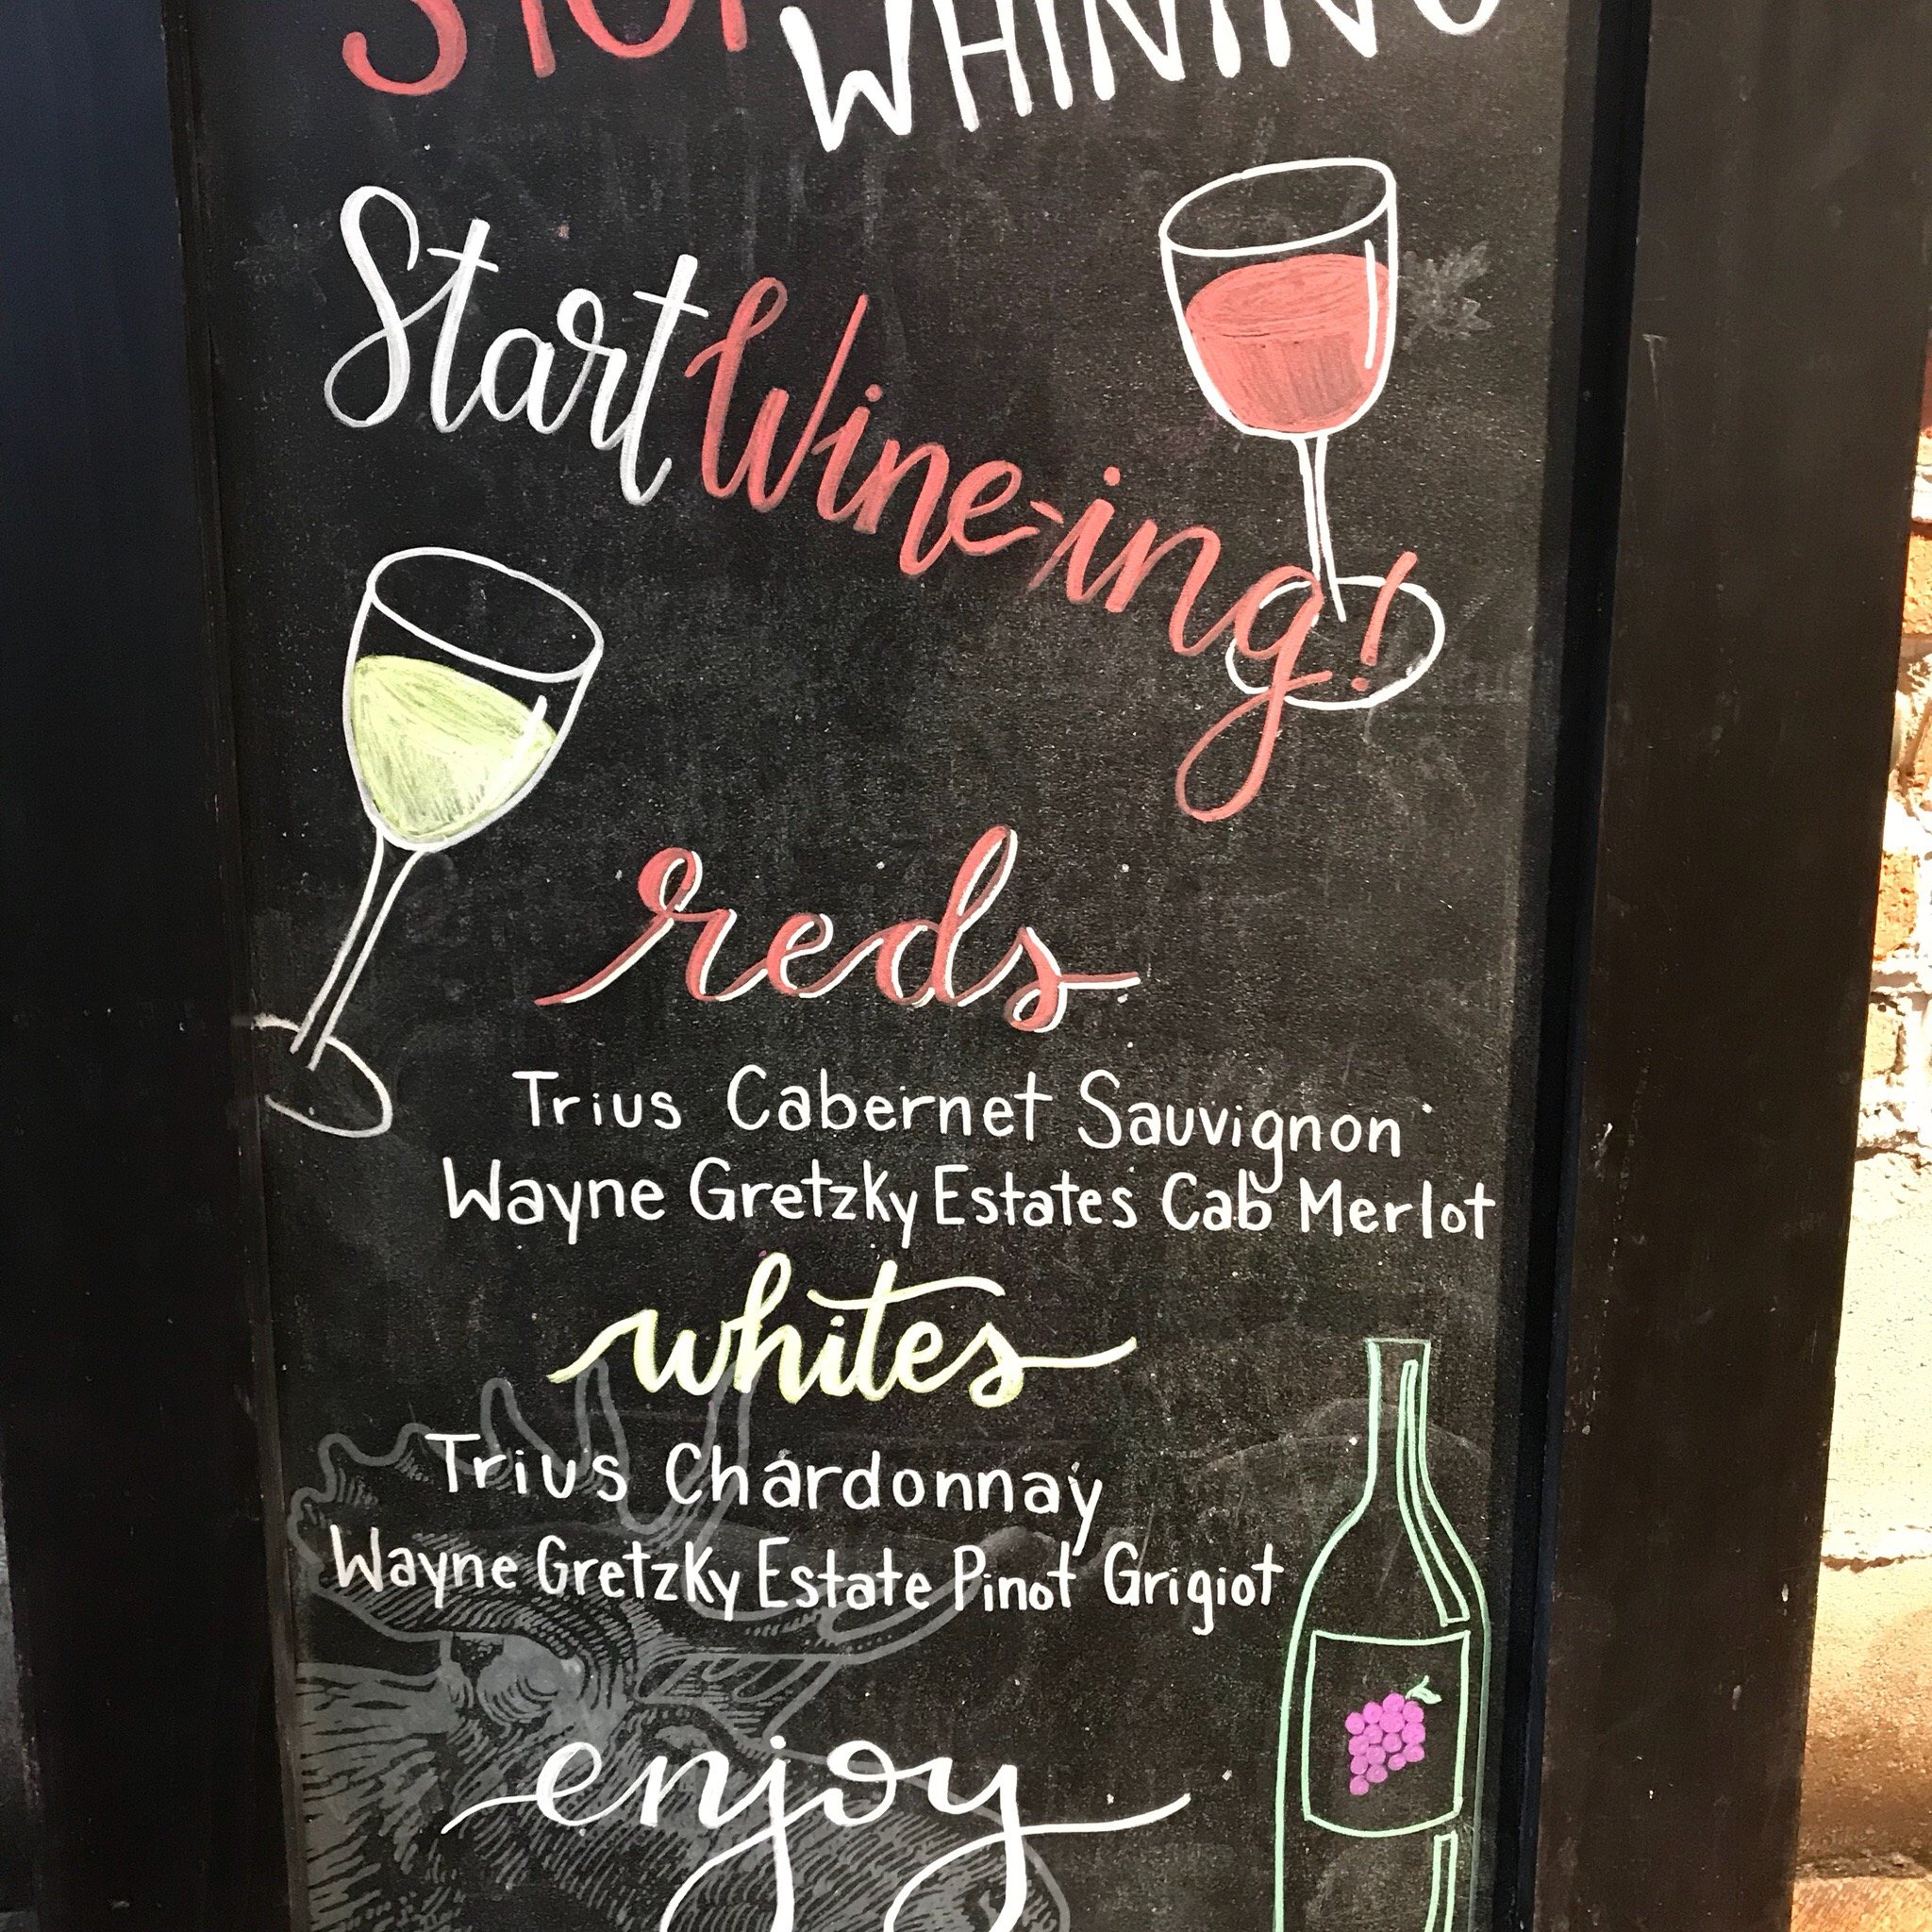 STOP WHINING
Start Wine-ing!
reds
Trius Cabernet Sauvignon
Wayne Gretzky Estates Cab Merlot
whites
Trius Chardonnay
Wayne Gretzky Estate Pinot Grigiot
enjoy